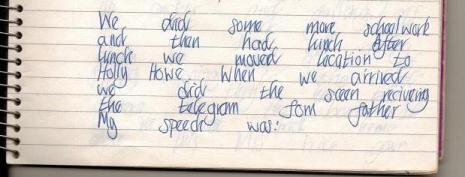 We did some more schoolwork
and than had lunch After
lunch we moved location to
Holly Howe When we arrived
we did the sceen reciveing
the telegram fom father
My speech was: